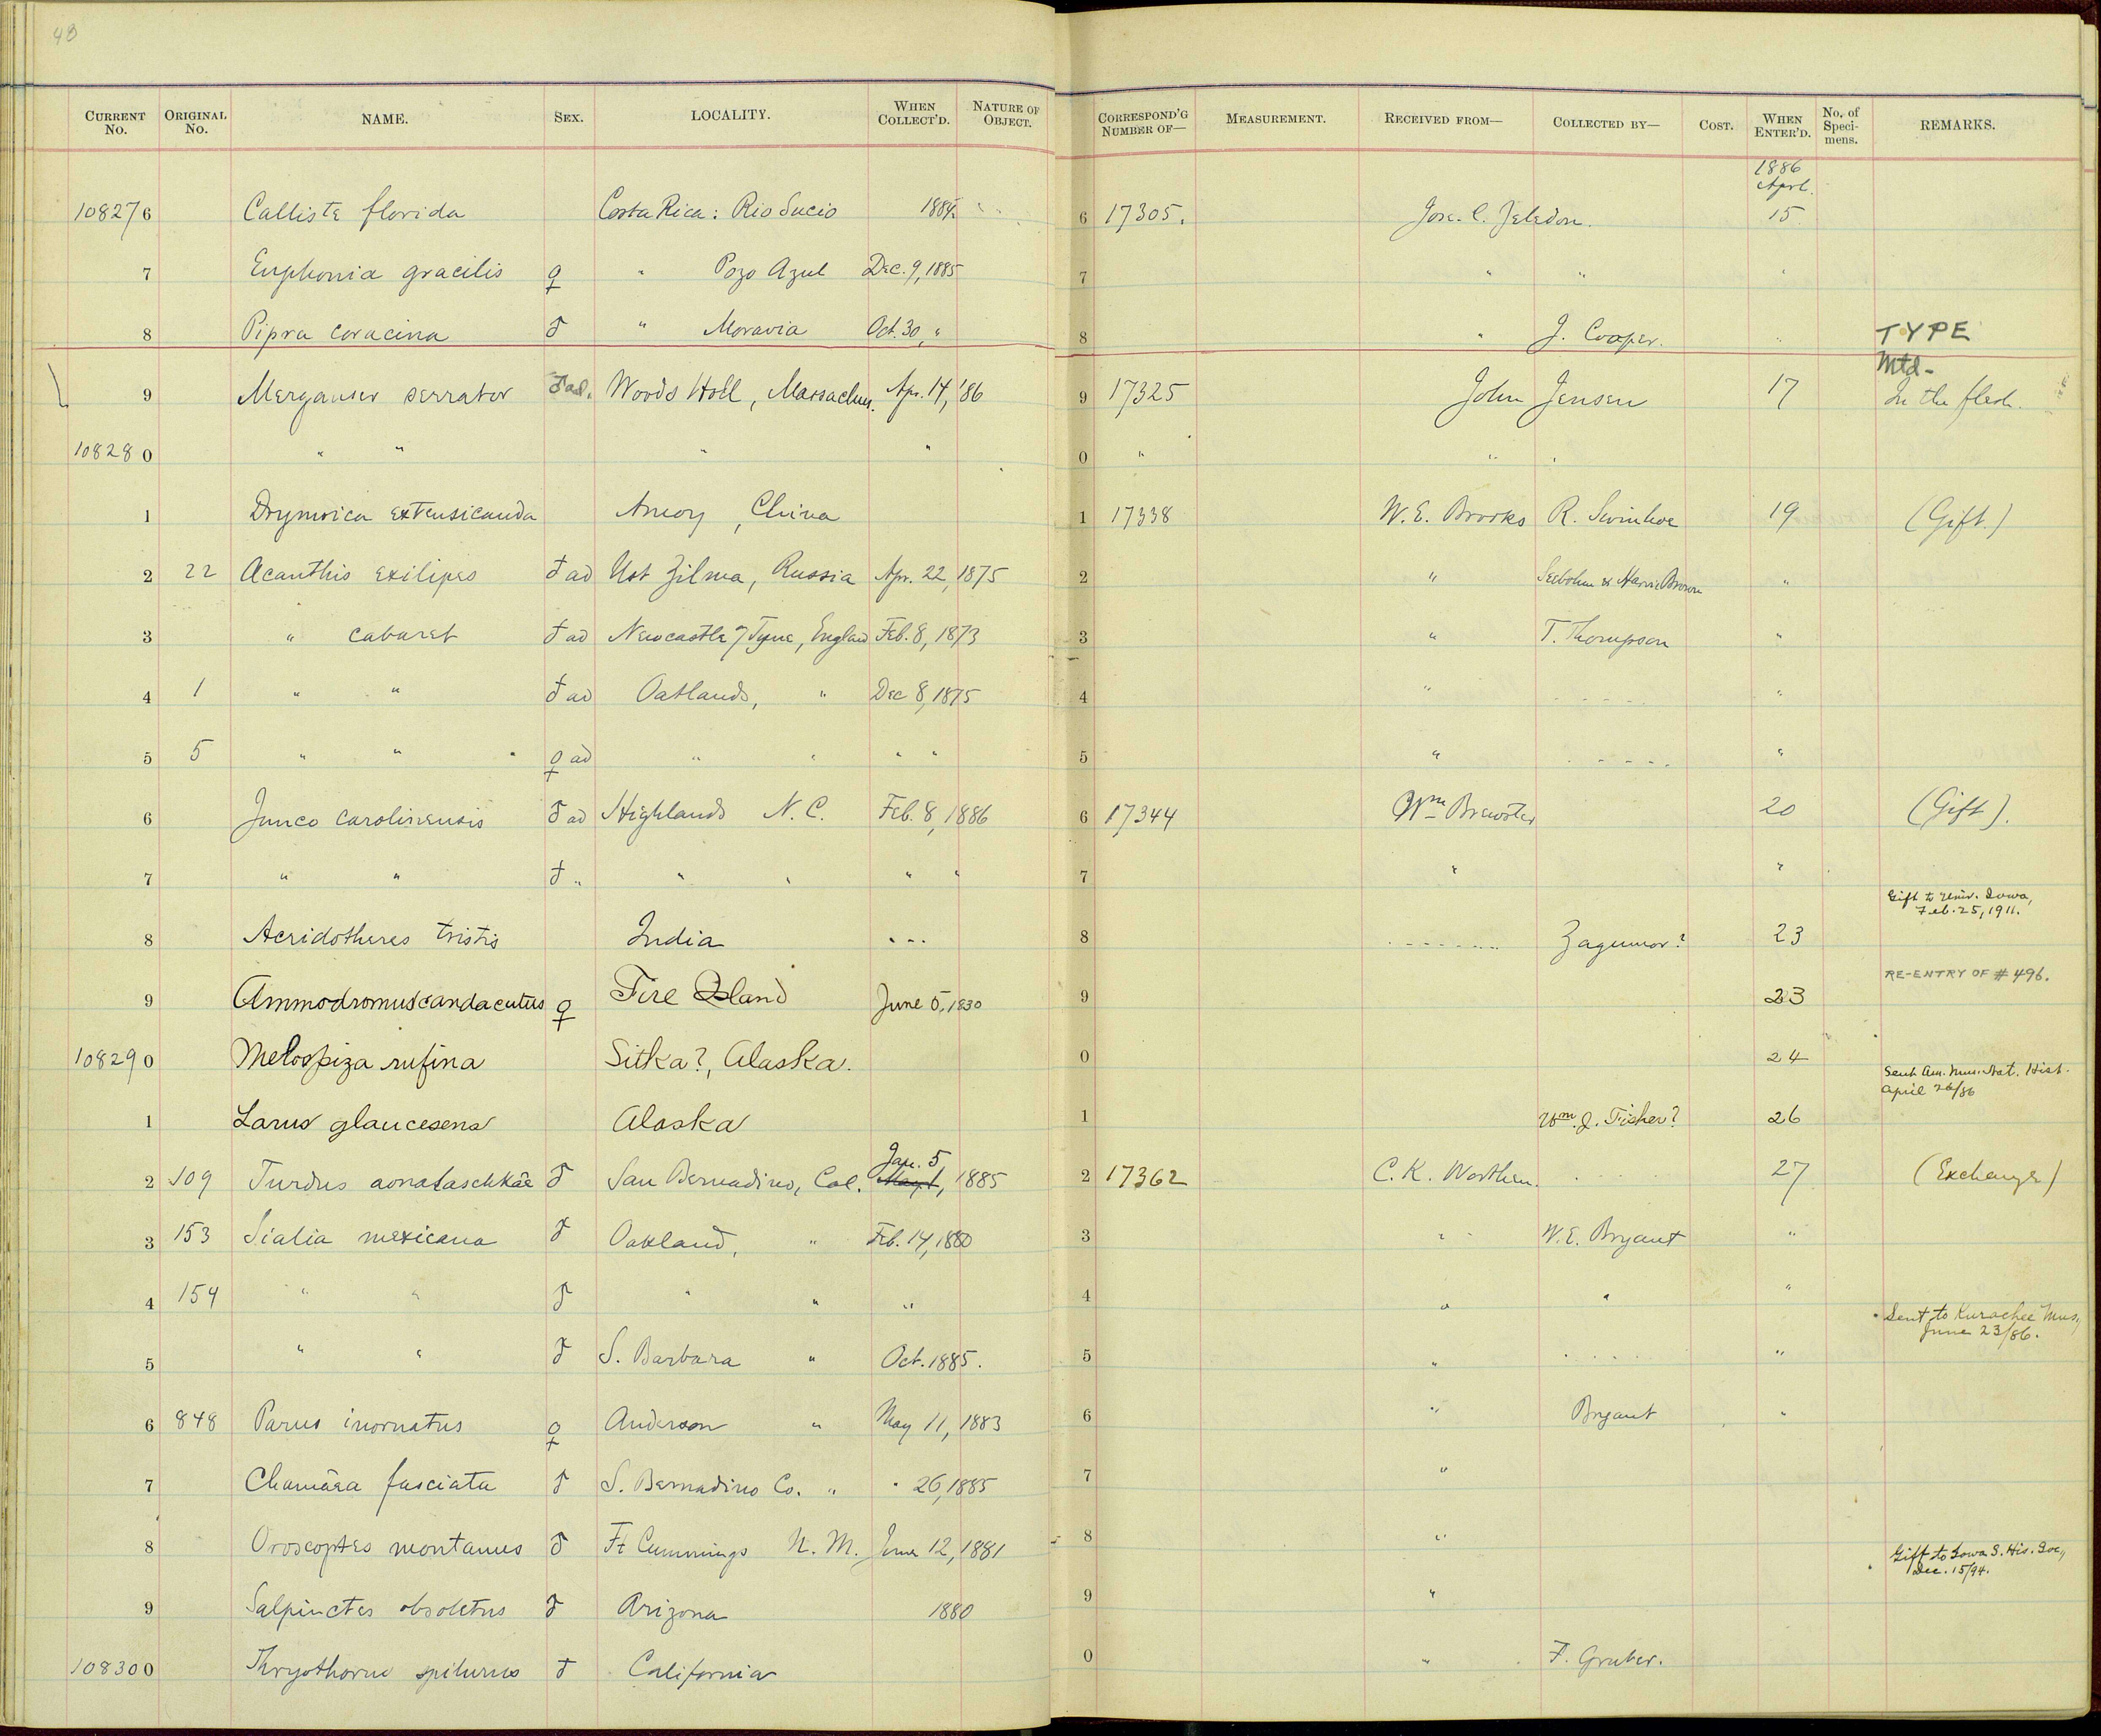 48
CURRENT No. ORIGINAL No. NAME. SEX. LOCALITY. WHEN COLLECT'D. NATURE OF OBJECT. CORRESPOND'G NUMBER OF— MEASUREMENT. RECEIVED FROM— COLLECTED BY— COST. WHEN ENTER'D. No. of Specimens. REMARKS.
1886
Apr.
108276 Calliste florida Costa Rica: Rio Sucio 6 17305. Jose. C. Zeledon. 15
7 Euphonia gracilis ♀ " Pozo Azul Dec. 9, 1885 7 " " "
8 Pipra coracina ♂ " Moravia Oct. 30, " 8 " J. Cooper. " TYPE
Mtd-
9 Merganser serrator ♂ ad. Woods Holl, Massachus. Apr. 14, '86 9 17325 John Jensen 17 In the flesh.
108280 " " " " 0 " " "
1 Drymoica extensicauda Amoy, China 1 17338 W. E. Brooks R. Swinhoe 19 (Gift.)
2 22 Acanthis exilipes ♂ ad Ust Zilma, Russia Apr. 22, 1875 2 " Seebohm & Harvie Brown "
3 " cabaret ♂ ad Newcastle Tyne, England Feb. 8, 1873 3 " T. Thompson "
4 1 " " ♂ ad Oatlands, " Dec 8, 1875 4 " - - - - - "
5 5 " " ♀ ad " " " " 5 " - - - - - "
6 Junco carolinensis ♂ ad Highlands N. C. Feb. 8, 1886 6 17344 Wm Brewster 20 (Gift).
7 " " ♂ " " " " " 7 " "
Gift to Univ. Iowa,
Feb. 25, 1911.
8 Acridotheres tristis India - - - 8 - - - - - - - Zagumor? 23
RE-ENTRY OF # 496.
9 Ammodromus caudacutus ♀ Fire Island June 5, 1830 9 23
108290 Melospiza rufina Sitka?, Alaska. 0 24
Sent Am. Mus. Nat. Hist.
April 26/86
1 Larus glaucesens Alaska 1 Wm. J. Fisher? 26
Jan. 5
2 109 Turdus aonalaschkæ ♂ San Bernadino, Cal. May 1, 1885 2 17362 C. K. Worthen. 27 (Exchange)
3 153 Sialia mexicana ♂ Oakland, " Feb. 14, 1880 3 " W. E. Bryant "
4 154 " " ♂ " " " 4 " " "
Sent to Kurachee Mus.,
June 23/86.
5 " " ♂ S. Barbara " Oct. 1885. 5 " - - - - "
6 848 Parus inornatus ♀ Anderson " May 11, 1883 6 " Bryant "
7 Chamæa fasciata ♂ S. Bernadino Co. " " 26, 1885 7 "
8 Oroscoptes montanus ♂ Ft Cummings N. M. June 12, 1881 8 "
Gift to Iowa S. His. Soc.,
Dec. 15/94.
9 Salpinctes obsoletus ♂ Arizona 1880 9 "
108300 Thryothorus spilurus ♂ California 0 " F. Gruber.